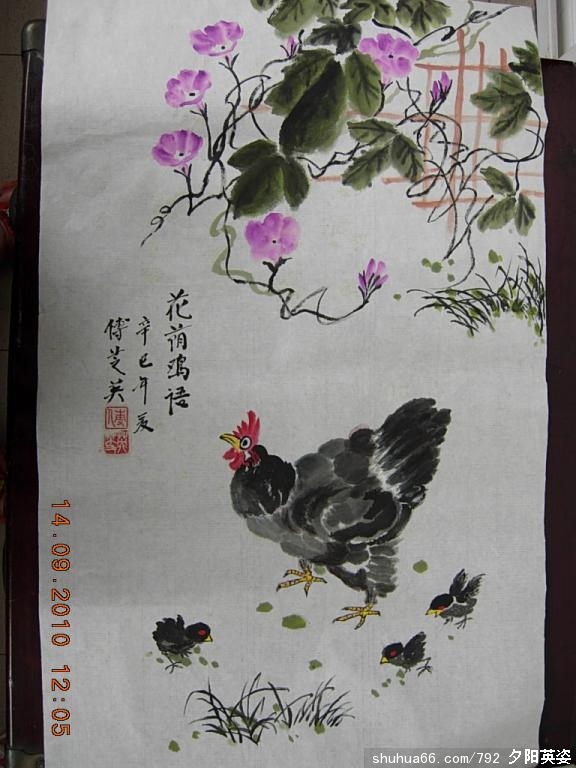 花荫鸡语
辛巳年夏
傅芝英
14.09.2010 12:05
shuhua66.com/792 夕阳英姿